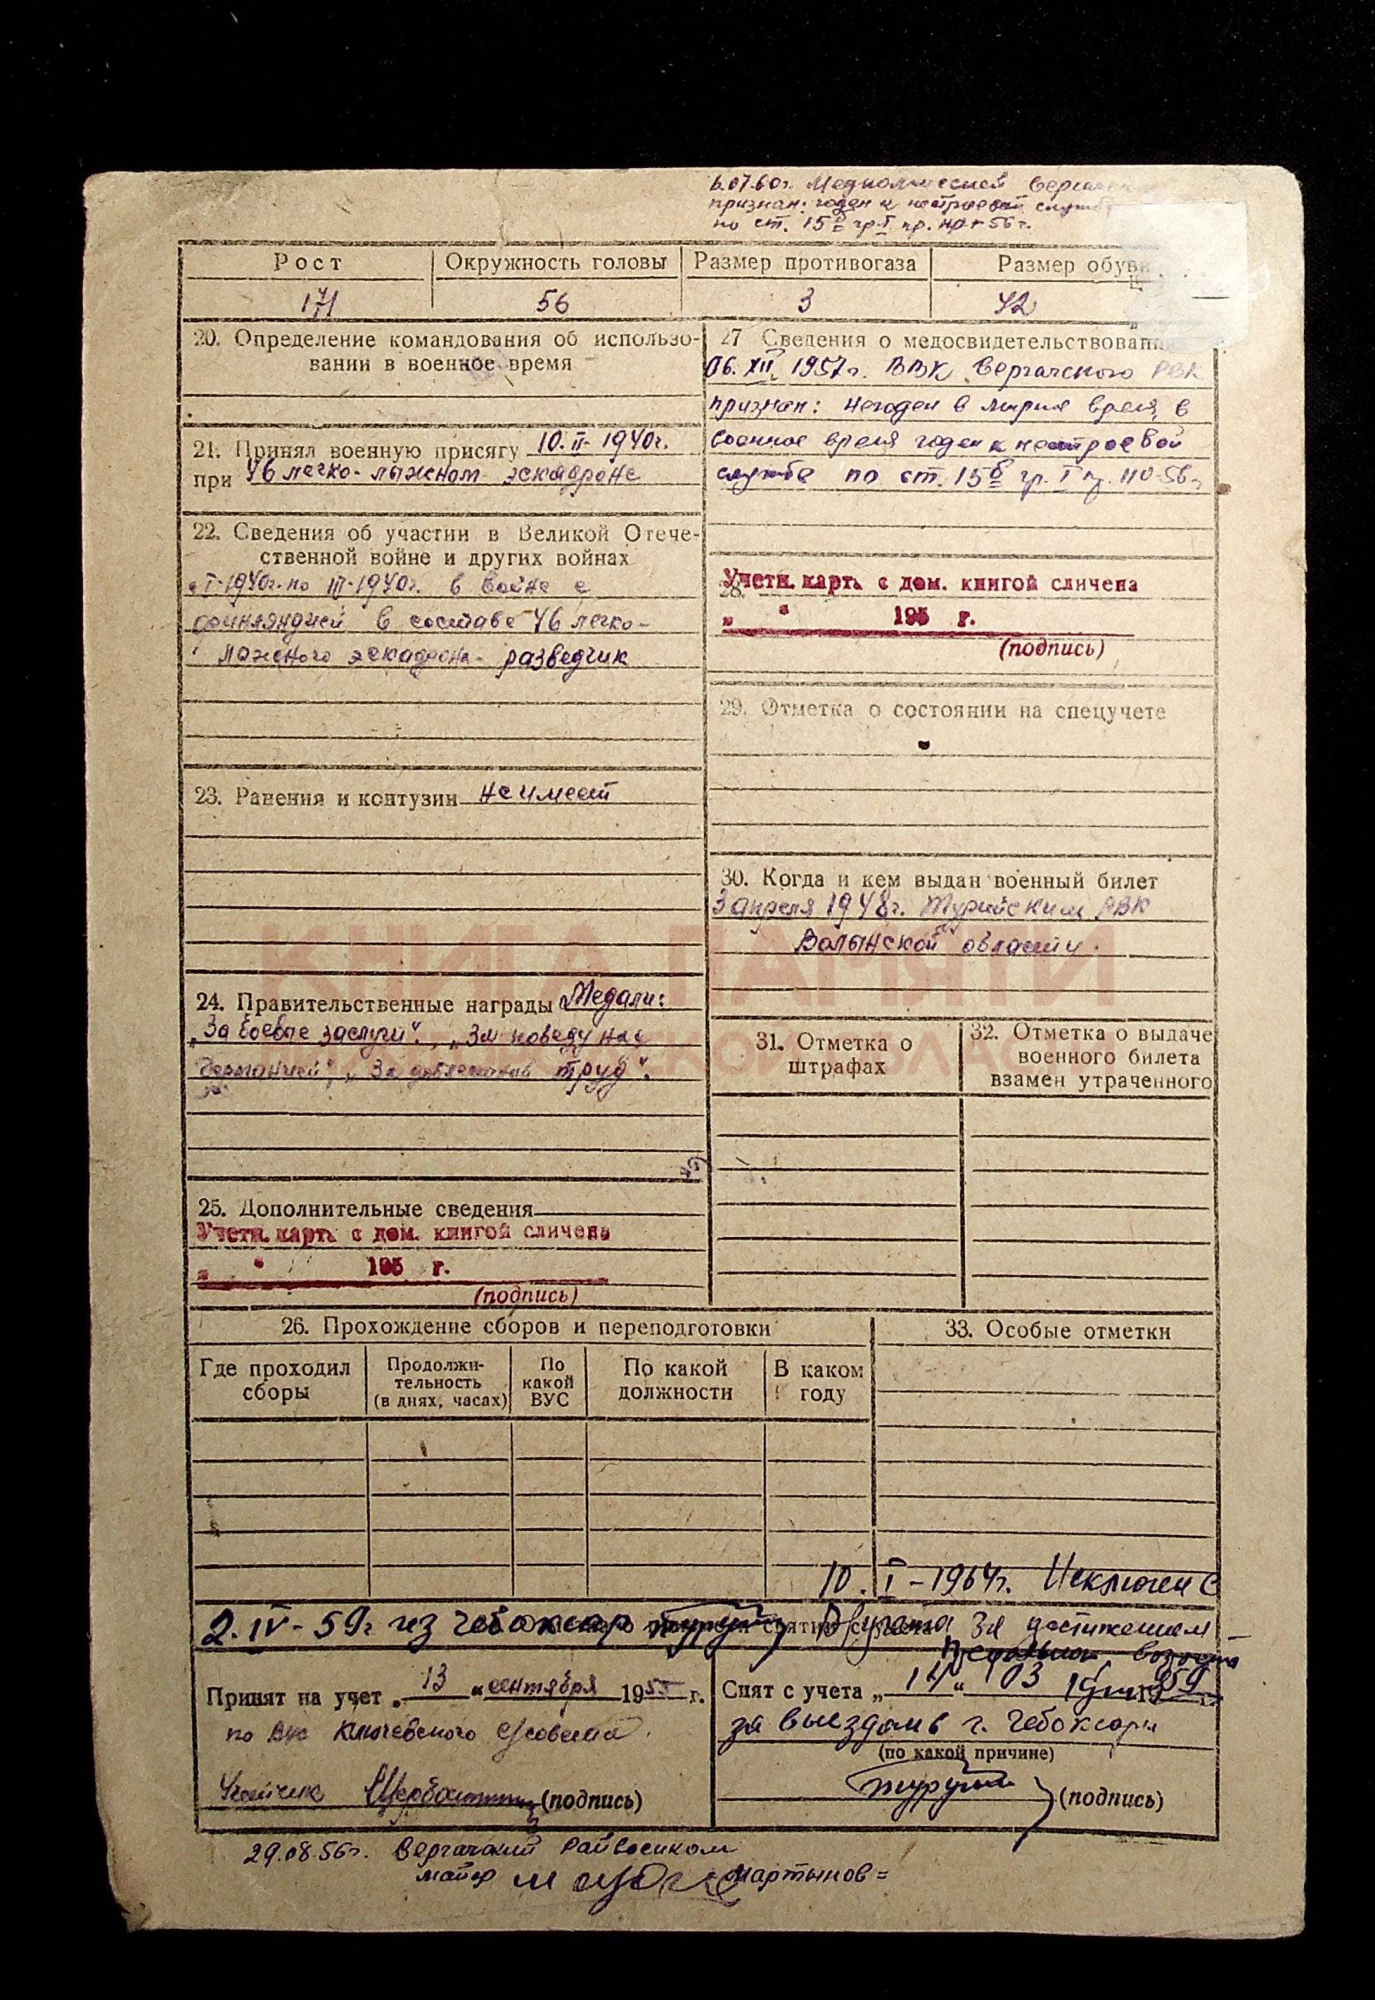 6.07.60г. Медкомиссией Вергач
признан: годен к нестроевой службе
по ст. 15б гр. I пр. НО-56г.
Рост
Окружность головы
Размер противогаза
Размер обуви
171
56
3
42
20. Определение командования об использо-
вании в военное время
21. Принял военную присягу 10.II-1940г.
при 46 легко-лыжном эскадроне
22. Сведения об участии в Великой Отече-
ственной войне и других войнах
с I-1940г. по III-1940г. в войне с
финляндией в составе 46 легко-
лыжного эскадрона - разведчик
23. Ранения и контузии не имеет
24. Правительственные награды Медали:
„За боевые заслуги“, „За победу над
Германией“, „За доблестный труд“.
25. Дополнительные сведения
Учетн. карть с дом. книгой сличена
„ “ 195 г.
(подпись)
27 Сведения о медосвидетельствовани
06.XII 1957г. ВВК Вергачского РВК
признан: негоден в мирное время, в
военное время годен к нестроевой
службе по ст. 15б гр. I пр. НО-56г.
28.
Учетн. карть с дом. книгой сличена
„ “ 195 г.
(подпись)
29. Отметка о состоянии на спецучете
30. Когда и кем выдан военный билет
3 апреля 1948г. Турийским РВК
Волынской области.
КНИГА ПАМЯТИ
31. Отметка о
штрафах
32. Отметка о выдаче
военного билета
взамен утраченного
26. Прохождение сборов и переподготовки
33. Особые отметки
Где проходил
сборы
Продолжи-
тельность
(в днях, часах)
По
какой
ВУС
По какой
должности
В каком
году
10.I-1964г. Исключен с
2.IV-59г из Чебоксар
учета за достижением
предельного возраста
Принят на учет „13“ сентября 1955 г.
по ВУС Ключевского с/совета.
Щербо (подпись)
Снят с учета „14“ 03 1959
за выездом в г. Чебоксары
(по какой причине)
(подпись)
29.08.56г. Вергачский Райвоенком
майор Мартынов=